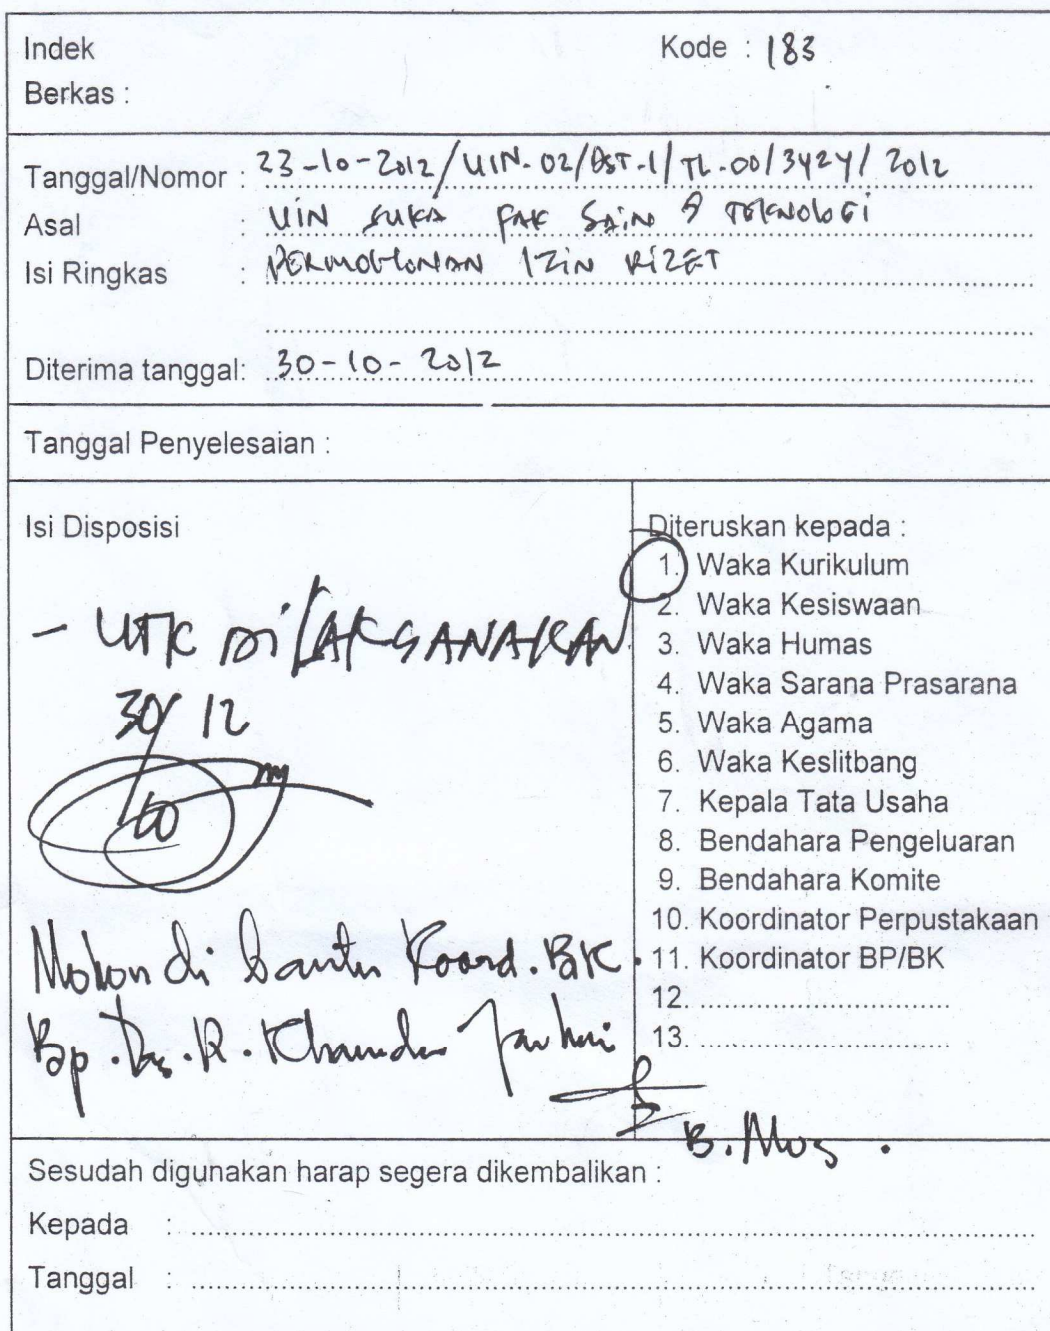 Indek Kode : 183
Berkas :
Tanggal/Nomor : 23-10-2012/UIN.02/DST.1/TL.00/3424/2012
Asal : UIN SUKA FAK SAiN & TEKNOLOGi
Isi Ringkas : PERMOHONAN IZiN RiZET
Diterima tanggal: 30-10-2012
Tanggal Penyelesaian :
Isi Disposisi
- UTK DiLAKSANAKAN
30/12
10
Mohon di bantu Koord. BK.
Bp. Drs. R. Khamdan
Diteruskan kepada :
1. Waka Kurikulum
2. Waka Kesiswaan
3. Waka Humas
4. Waka Sarana Prasarana
5. Waka Agama
6. Waka Keslitbang
7. Kepala Tata Usaha
8. Bendahara Pengeluaran
9. Bendahara Komite
10. Koordinator Perpustakaan
11. Koordinator BP/BK
12.
13.
B. Mus.
Sesudah digunakan harap segera dikembalikan :
Kepada :
Tanggal :